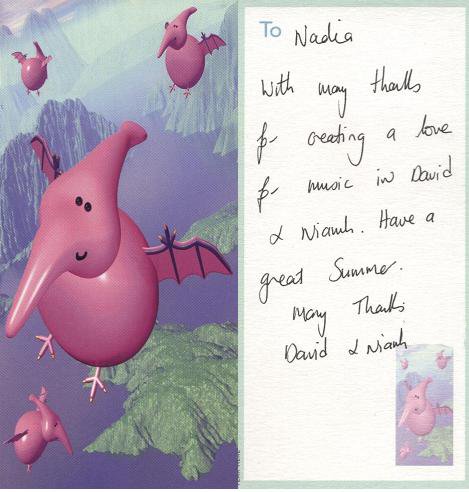 To Nadia
With many thanks
for creating a love
for music in David
& Niamh. Have a
great Summer.
Many Thanks
David & Niamh